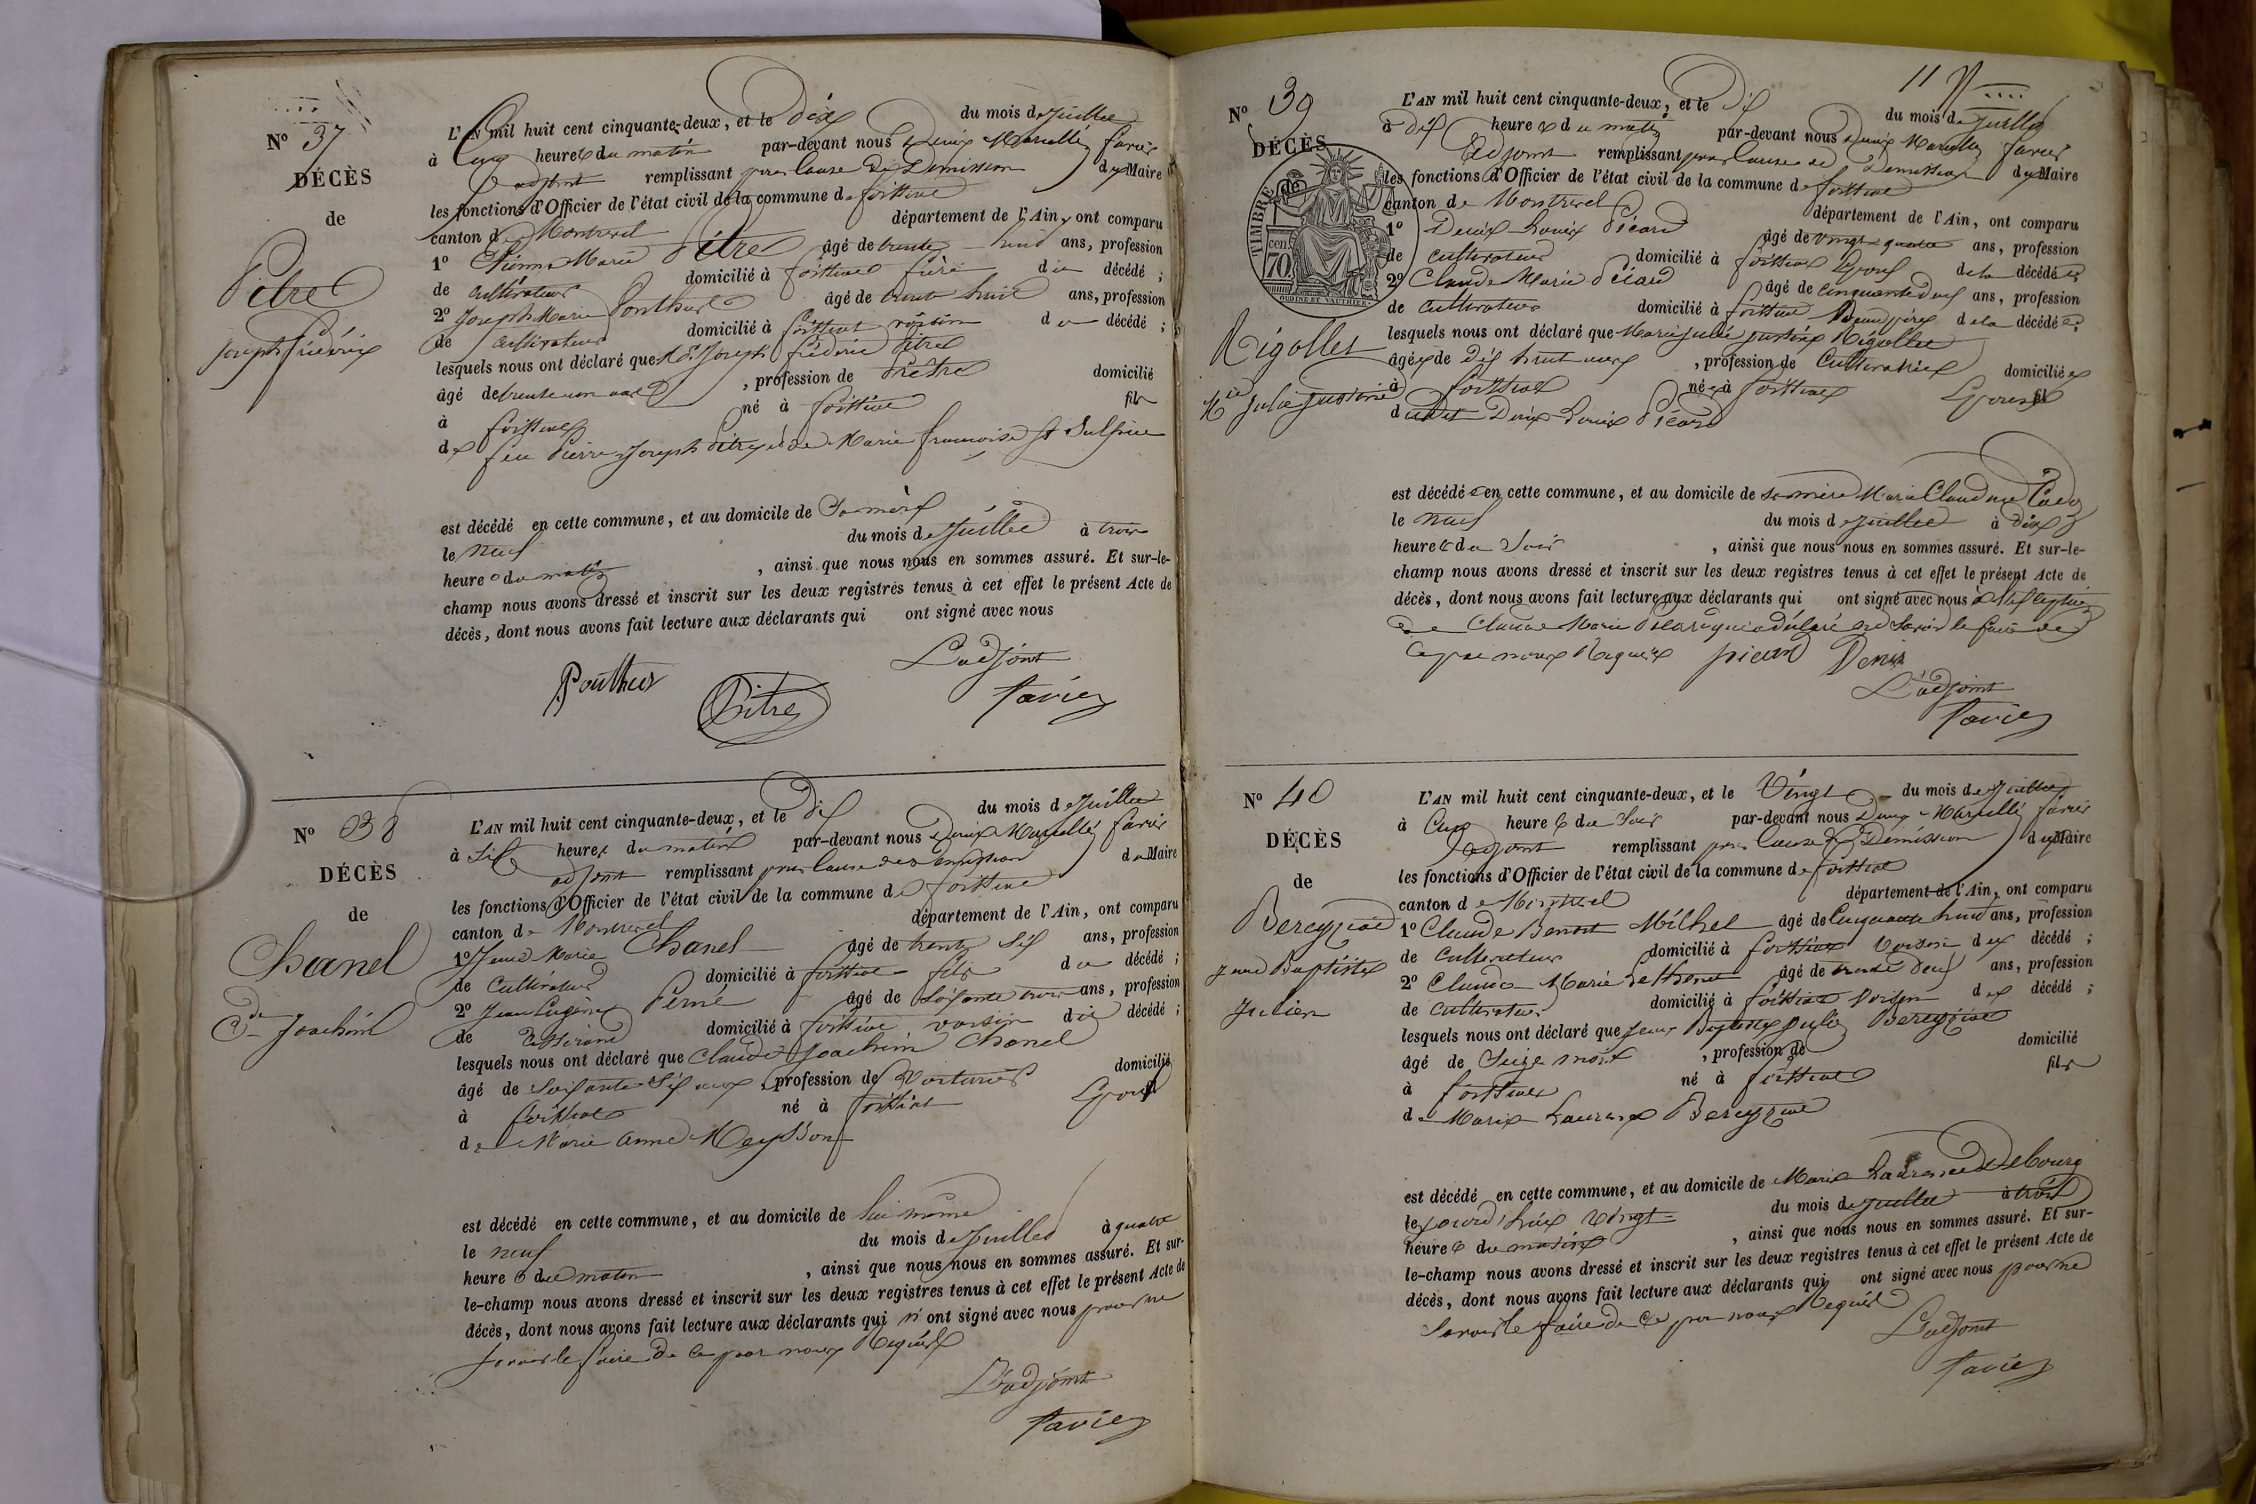 N° 37
DÉCÈS
de
Pitre
Joseph frédéric
L'AN mil huit cent cinquante-deux, et le Dix du mois de Juillet
à Cinq heures du matin par-devant nous Denis Marcellin favier
adjoint remplissant pour Cause de Démission du Maire
les fonctions d'Officier de l'état civil de la commune de foissiat
canton de Montrevel département de l'Ain, ont comparu
1° Marie Pitre âgé de trente huit ans, profession
de cultivateur domicilié à foissiat frère du décédé ;
2° Joseph Marie Ponthus âgé de trente huit ans, profession
de cultivateur domicilié à foissiat voisin du décédé ;
lesquels nous ont déclaré que Joseph frédéric Pitre
âgé de trente un ans , profession de Prêtre domicilié
à foissiat né à foissiat fils
de feu Pierre Joseph Pitre et de Marie françoise St Sulpice
est décédé en cette commune, et au domicile de Sa mère
le neuf du mois de Juillet à trois
heure du matin , ainsi que nous nous en sommes assuré. Et sur-le-
champ nous avons dressé et inscrit sur les deux registres tenus à cet effet le présent Acte de
décès, dont nous avons fait lecture aux déclarants qui ont signé avec nous
L'adjoint
Ponthus Pitre favier
N° 38
DÉCÈS
de
Chanel
Cde Joachim
L'AN mil huit cent cinquante-deux, et le Dix du mois de Juillet
à Six heures du matin par-devant nous Denis Marcellin favier
adjoint remplissant pour Cause de Démission du Maire
les fonctions d'Officier de l'état civil de la commune de foissiat
canton de Montrevel département de l'Ain, ont comparu
1° Marie Chanel âgé de trente Six ans, profession
de Cultivateur domicilié à foissiat fils du décédé ;
2° Jean Eugène âgé de Soixante trois ans, profession
de domicilié à foissiat voisin du décédé ;
lesquels nous ont déclaré que Claude Joachim Chanel
âgé de Soixante Six ans , profession de Voiturier domicilié
à foissiat né à foissiat Epoux
de Marie Anne
est décédé en cette commune, et au domicile de lui même
le neuf du mois de Juillet à quatre
heure du matin , ainsi que nous nous en sommes assuré. Et sur-
le-champ nous avons dressé et inscrit sur les deux registres tenus à cet effet le présent Acte de
décès, dont nous avons fait lecture aux déclarants qui n'ont signé avec nous pour ne
Savoir le faire de ce par nous Requis
L'adjoint
favier
11
N° 39
DÉCÈS
de
TIMBRE
cen
70
OUDINE ET VAUTHIER
Rigollet
Mie Julie Justine
L'AN mil huit cent cinquante-deux, et le Dix du mois de Juillet
à Dix heures du matin par-devant nous Denis Marcellin favier
Adjoint remplissant pour Cause de Démission du Maire
les fonctions d'Officier de l'état civil de la commune de foissiat
canton de Montrevel département de l'Ain, ont comparu
1° Denis Louis Picard âgé de vingt quatre ans, profession
de cultivateur domicilié à foissiat Epoux de la décédée ;
2° Claude Marie Picard âgé de cinquante deux ans, profession
de cultivateur domicilié à foissiat Beau père de la décédée ;
lesquels nous ont déclaré que Marie Julie Justine Rigollet
âgée de dix huit ans , profession de Cultivatrice domiciliée
à foissiat née à foissiat Epouse
dudit Denis Louis Picard
est décédée en cette commune, et au domicile de sa mère Marie Claudine
le neuf du mois de Juillet à dix
heures du Soir , ainsi que nous nous en sommes assuré. Et sur-le-
champ nous avons dressé et inscrit sur les deux registres tenus à cet effet le présent Acte de
décès, dont nous avons fait lecture aux déclarants qui ont signé avec nous à l'exception
de Claude Marie Picard qui a déclaré ne Savoir le faire de
Ce par nous Requis picard Denis
L'adjoint
favier
N° 40
DÉCÈS
de
Bereyziat
Jean Baptiste
Julien
L'AN mil huit cent cinquante-deux, et le Vingt du mois de Juillet
à Cinq heures du Soir par-devant nous Denis Marcellin favier
adjoint remplissant pour Cause de Démission du Maire
les fonctions d'Officier de l'état civil de la commune de foissiat
canton de Montrevel département de l'Ain, ont comparu
1° Claude Benoit Michel âgé de Cinquante huit ans, profession
de Cultivateur domicilié à foissiat Voisin du décédé ;
2° Claude Marie âgé de trente deux ans, profession
de cultivateur domicilié à foissiat voisin du décédé ;
lesquels nous ont déclaré que Jean Baptiste Julien Bereyziat
âgé de Seize mois , profession de domicilié
à foissiat né à foissiat fils
de Marie Laurence Bereyziat
est décédé en cette commune, et au domicile de Marie Laurence Debourg
le jourd'hui vingt du mois de Juillet à trois
heures du matin , ainsi que nous nous en sommes assuré. Et sur-
le-champ nous avons dressé et inscrit sur les deux registres tenus à cet effet le présent Acte de
décès, dont nous avons fait lecture aux déclarants qui ont signé avec nous pour ne
Savoir le faire de Ce par nous Requis
L'adjoint
favier